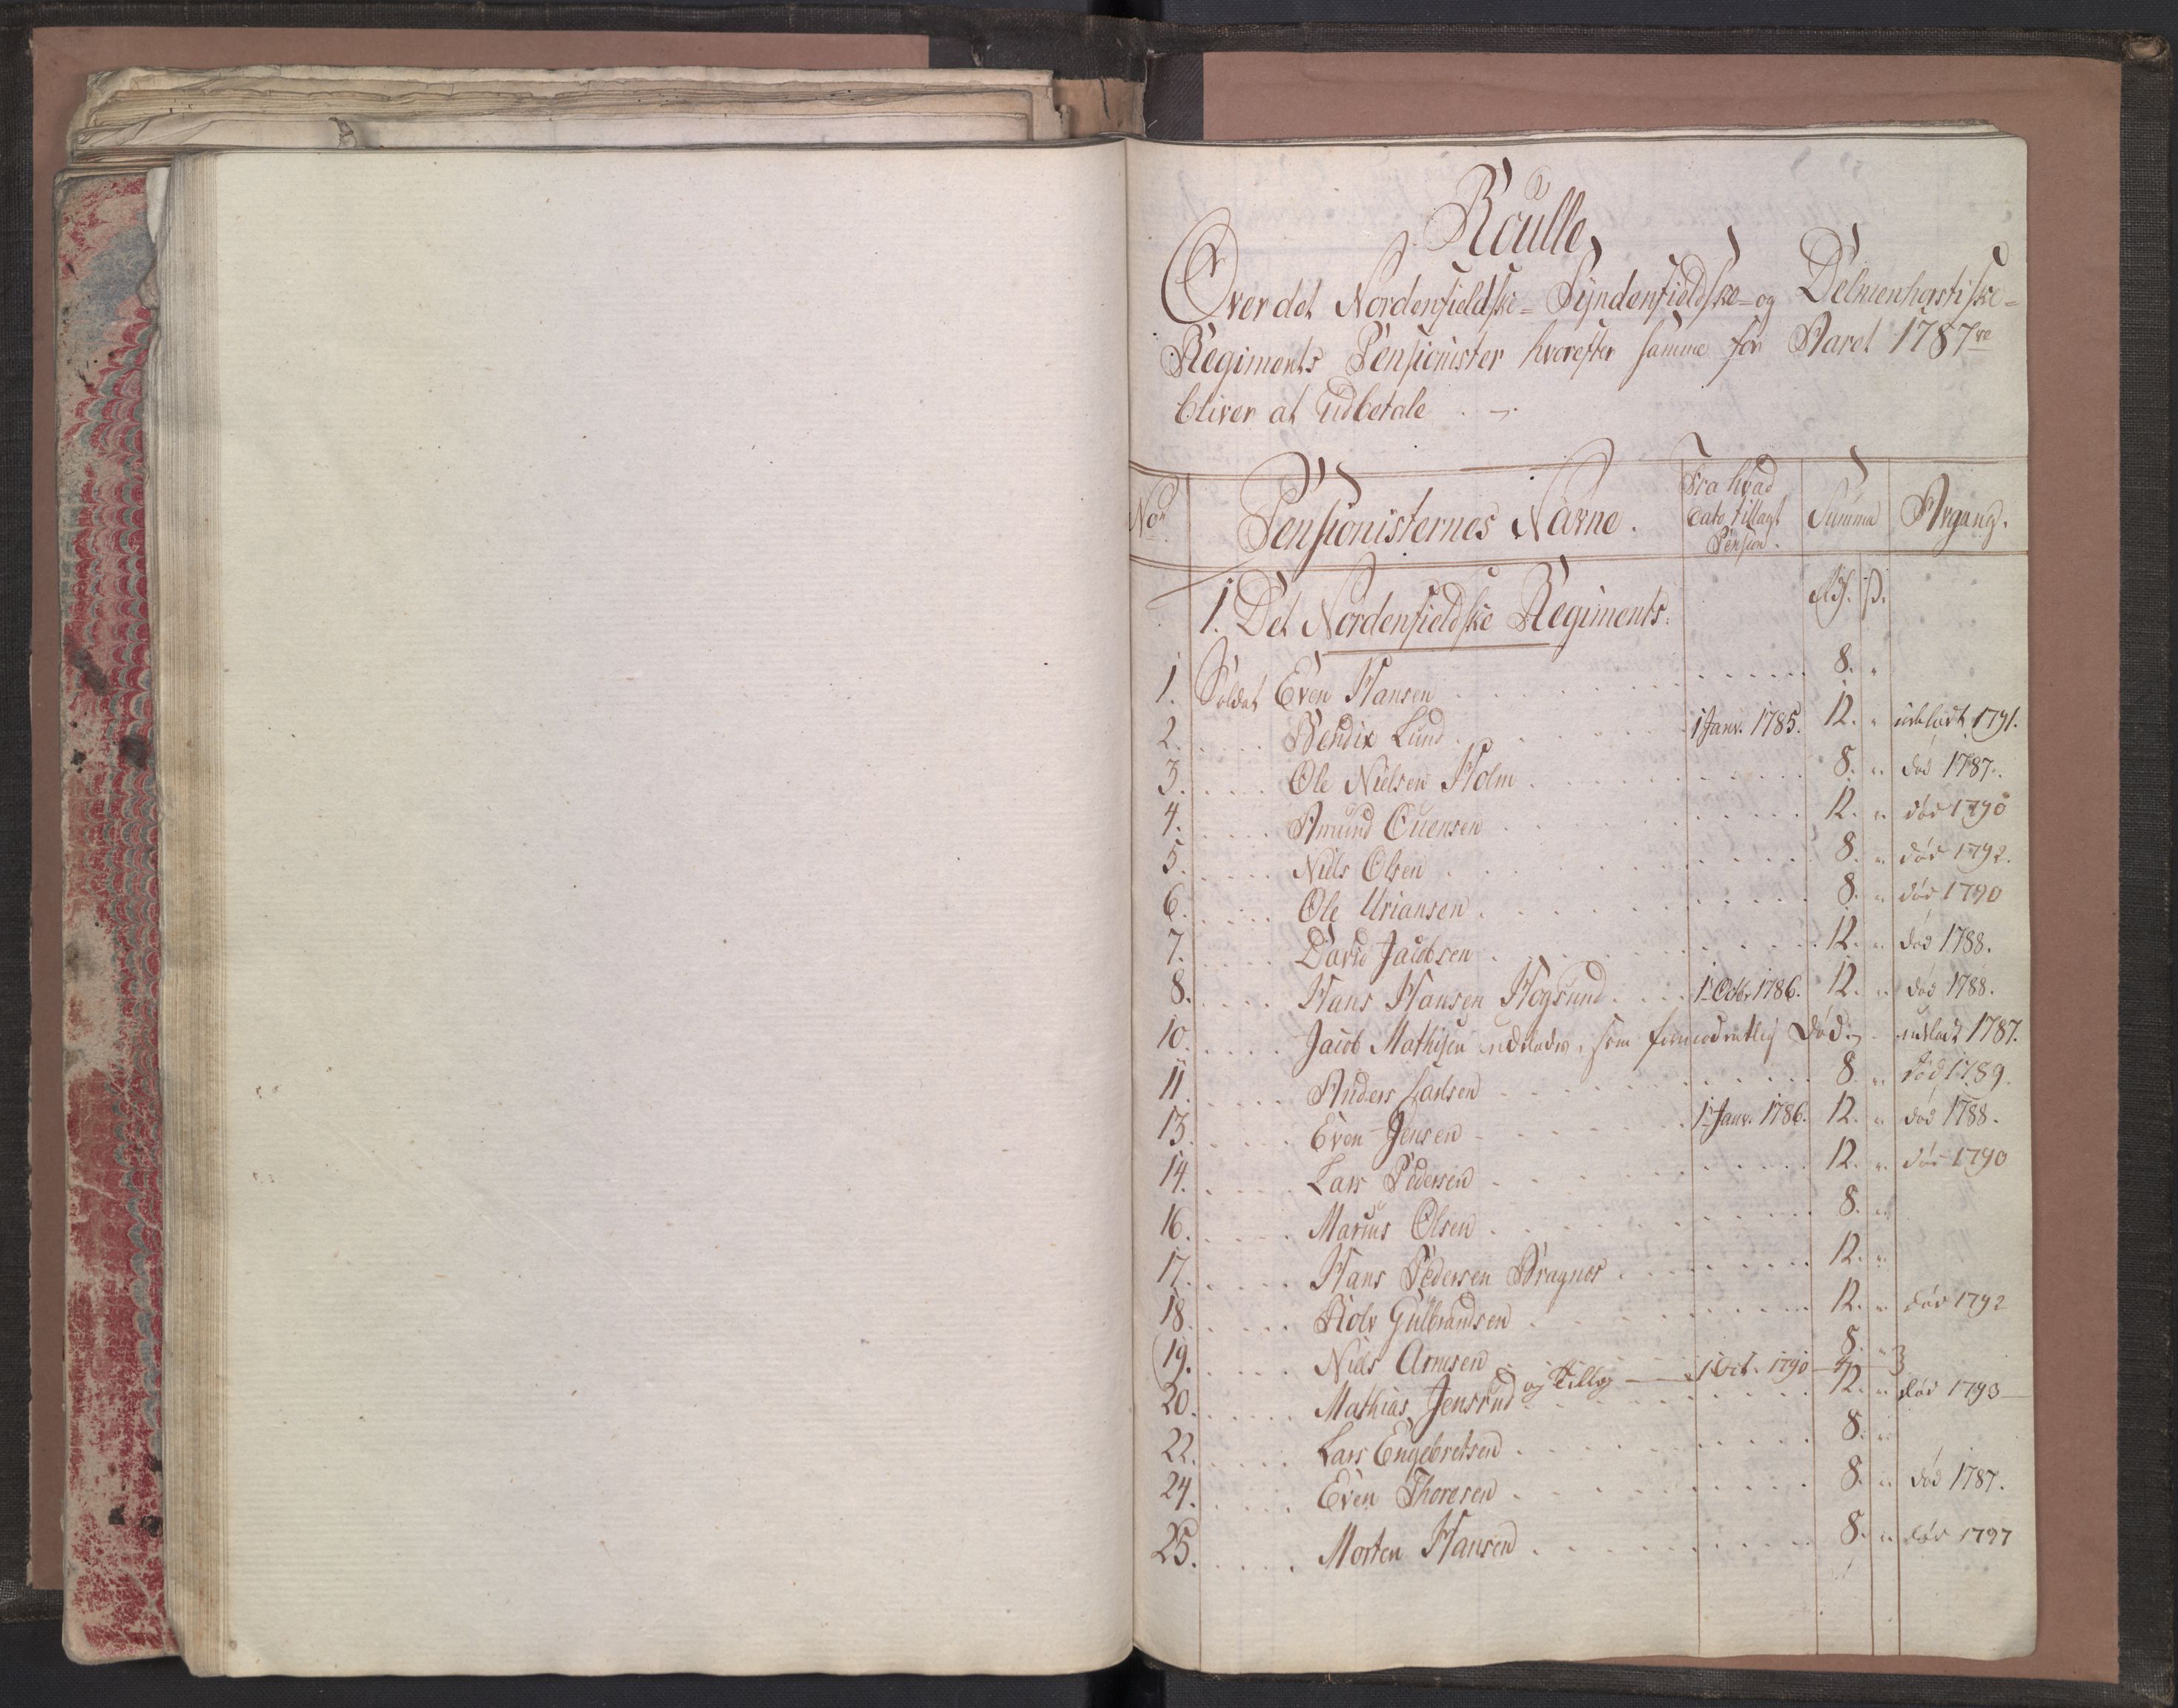 Roulle
Over det Nordenfieldske- Syndenfieldske- og Delmenhorstiske-
Regiments Pensionister hvorefter samme for Aaret 1787ve
bliver at udbetale
No
Pensionisternes Navne.
Fra hvad
dato tillagt
Pension.
Summa
Afgang.
1. Det Nordenfieldske Regiments. Rdl. ß.
1. Soldat Even Hansen 8. "
2. Bendix Lund 1 Janv. 1785. 12. " udeladt 1791.
3. Ole Nielsen Holm 8. " død 1787.
4. Amund Evensen 12. " død 1790
5. Niels Olsen 8. " død 1792.
6. Ole Uriansen 8. " død 1790
7. David Jacobsen 12. " død 1788.
8. Hans Hansen Hogsund 1 Octbr 1786. 12. " død 1788.
10. Jacob Mathisen udelades, som formodentlig død. udeladt 1787.
11. Anders Larsen 8. " død 1789.
13. Even Jensen 1 Janv. 1786. 12. " død 1788.
14. Lars Pedersen 12. " død 1790
16. Marius Olsen 8. "
17. Hans Pedersen Bragnes 12. "
18. Rolv Gulbrandsen 12. " død 1792
19. Niels Arnesen 8. "
og Tillæg 1 Oct. 1790 4
20. Mathias Jensrud 12. " død 1793
22. Lars Engebretsen 8. "
24. Even Thoresen 8. " død 1787.
25. Morten Hansen 8. " død 1797